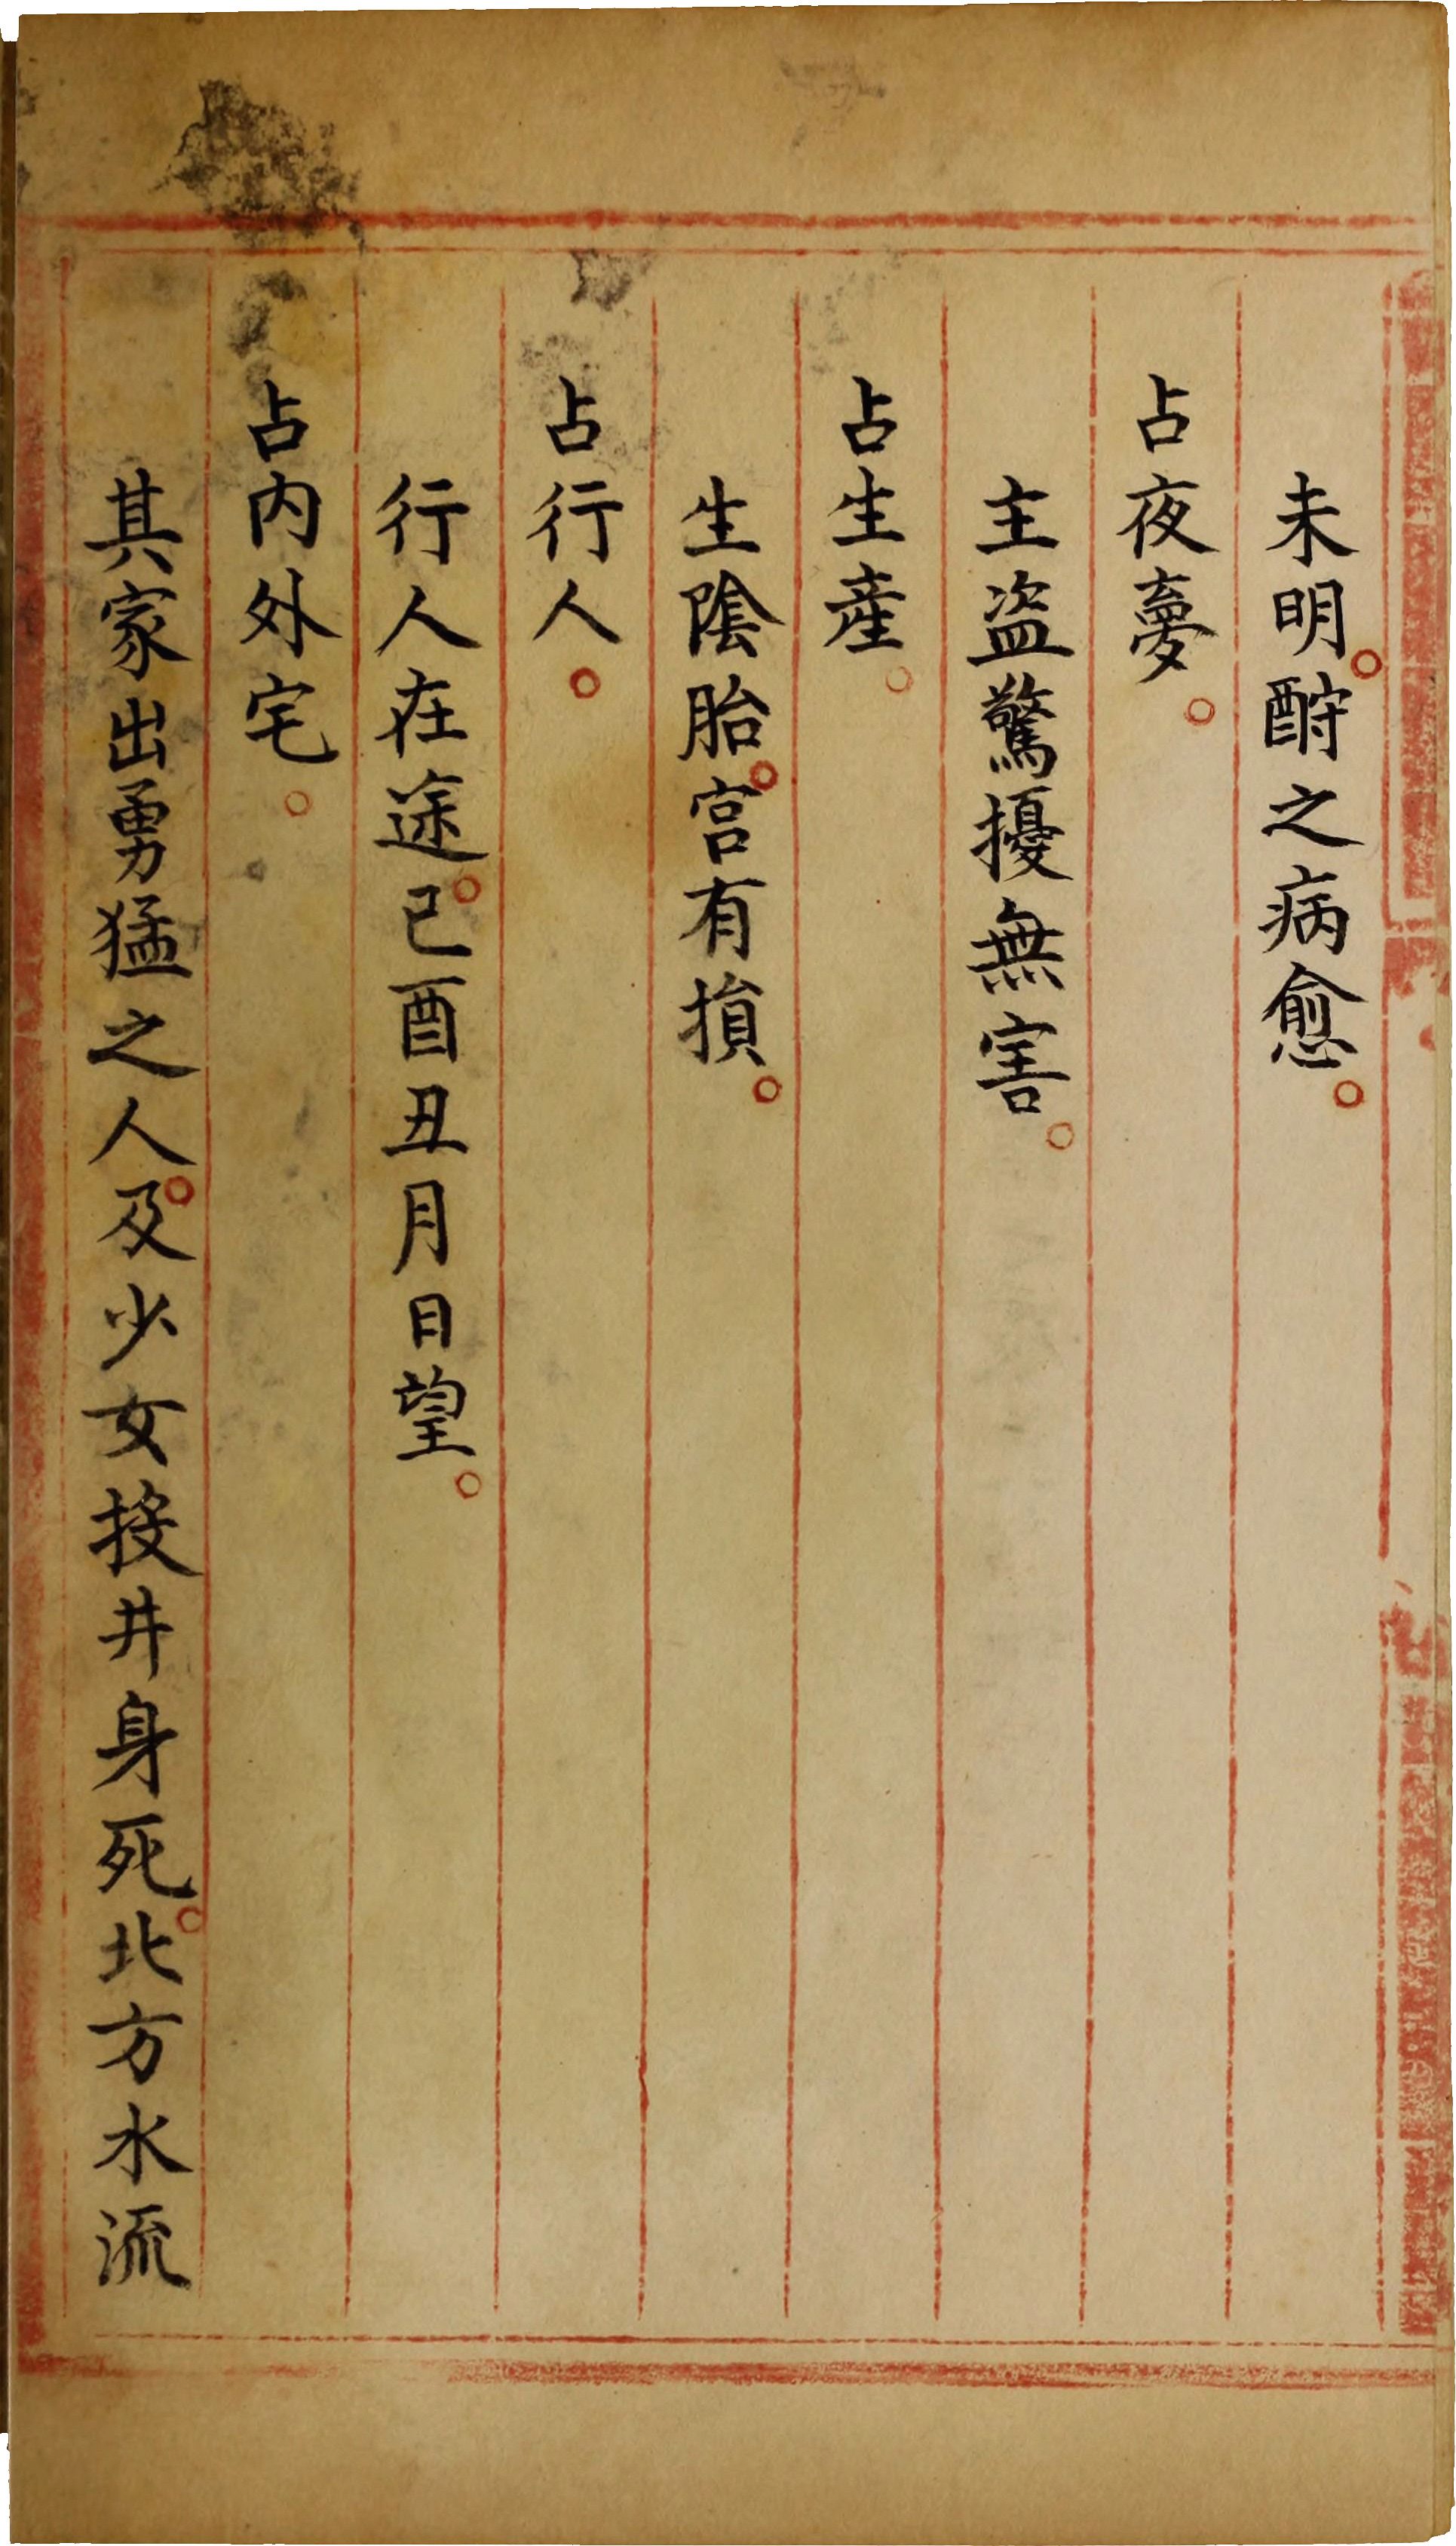 未明。酧之病愈。
占夜夢。
主盗驚擾無害。
占生產。
生陰胎。宫有損。
占行人。
行人在途。己酉丑月日望。
占内外宅。
其家出勇猛之人。及少女投井身死。北方水流